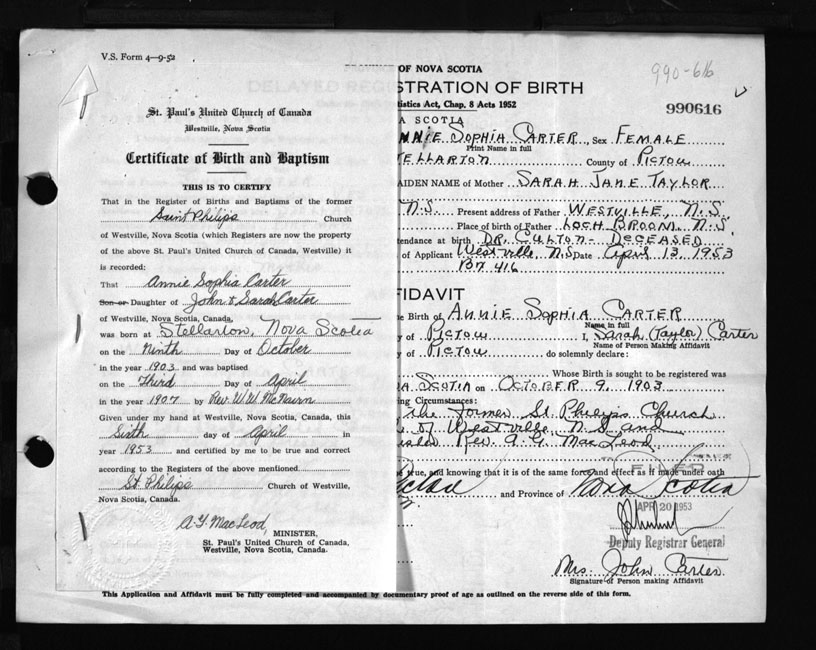 V.S. Form 4—9-52
St. Paul's United Church of Canada
Westville, Nova Scotia
Certificate of Birth and Baptism
THIS IS TO CERTIFY
That in the Register of Births and Baptisms of the former
Saint Philips Church
of Westville, Nova Scotia (which Registers are now the property
of the above St. Paul's United Church of Canada, Westville) it
is recorded:
That Annie Sophia Carter
Son or Daughter of John & Sarah Carter
of Westville, Nova Scotia, Canada,
was born at Stellarton, Nova Scotia
on the Ninth Day of October
in the year 1903 and was baptised
on the Third Day of April
in the year 1907 by Rev. W.W. McNairn
Given under my hand at Westville, Nova Scotia, this
Sixth day of April in
year 1953 and certified by me to be true and correct
according to the Registers of the above mentioned
St Philips Church of Westville,
Nova Scotia, Canada.
A.G. MacLeod,
MINISTER,
St. Paul's United Church of Canada,
Westville, Nova Scotia, Canada.
OF NOVA SCOTIA
990-616
DELAYED REGISTRATION OF BIRTH
tistics Act, Chap. 8 Acts 1952
990616
A SCOTIA
NNIE SOPHIA CARTER, Sex FEMALE
Print Name in full
TELLARTON County of PICTOU
AIDEN NAME of Mother SARAH JANE TAYLOR
N.S. Present address of Father WESTVILLE, N.S.
Place of birth of Father LOCH BROOM, N.S
tendance at birth DR. CULTON - DECEASED
of Applicant Westville, N.S Date April 13, 1953
Bx 416
FIDAVIT
he Birth of ANNIE SOPHIA CARTER
Name in full
y of PICTOU I, Sarah (Taylor) Carter
Name of Person Making Affidavit
y of PICTOU do solemnly declare:
Whose Birth is sought to be registered was
A SCOTIA on OCTOBER 9, 1903
ing Circumstances:
the former St Philips Church
of Westville N.S and
Rev. A.G. MacLeod
e true, and knowing that it is of the same force and effect as if made under oath
FILED
and Province of Nova Scotia
APR 20 1953
Deputy Registrar General
Mrs. John Carter
Signature of Person making Affidavit
This Application and Affidavit must be fully completed and accompanied by documentary proof of age as outlined on the reverse side of this form.